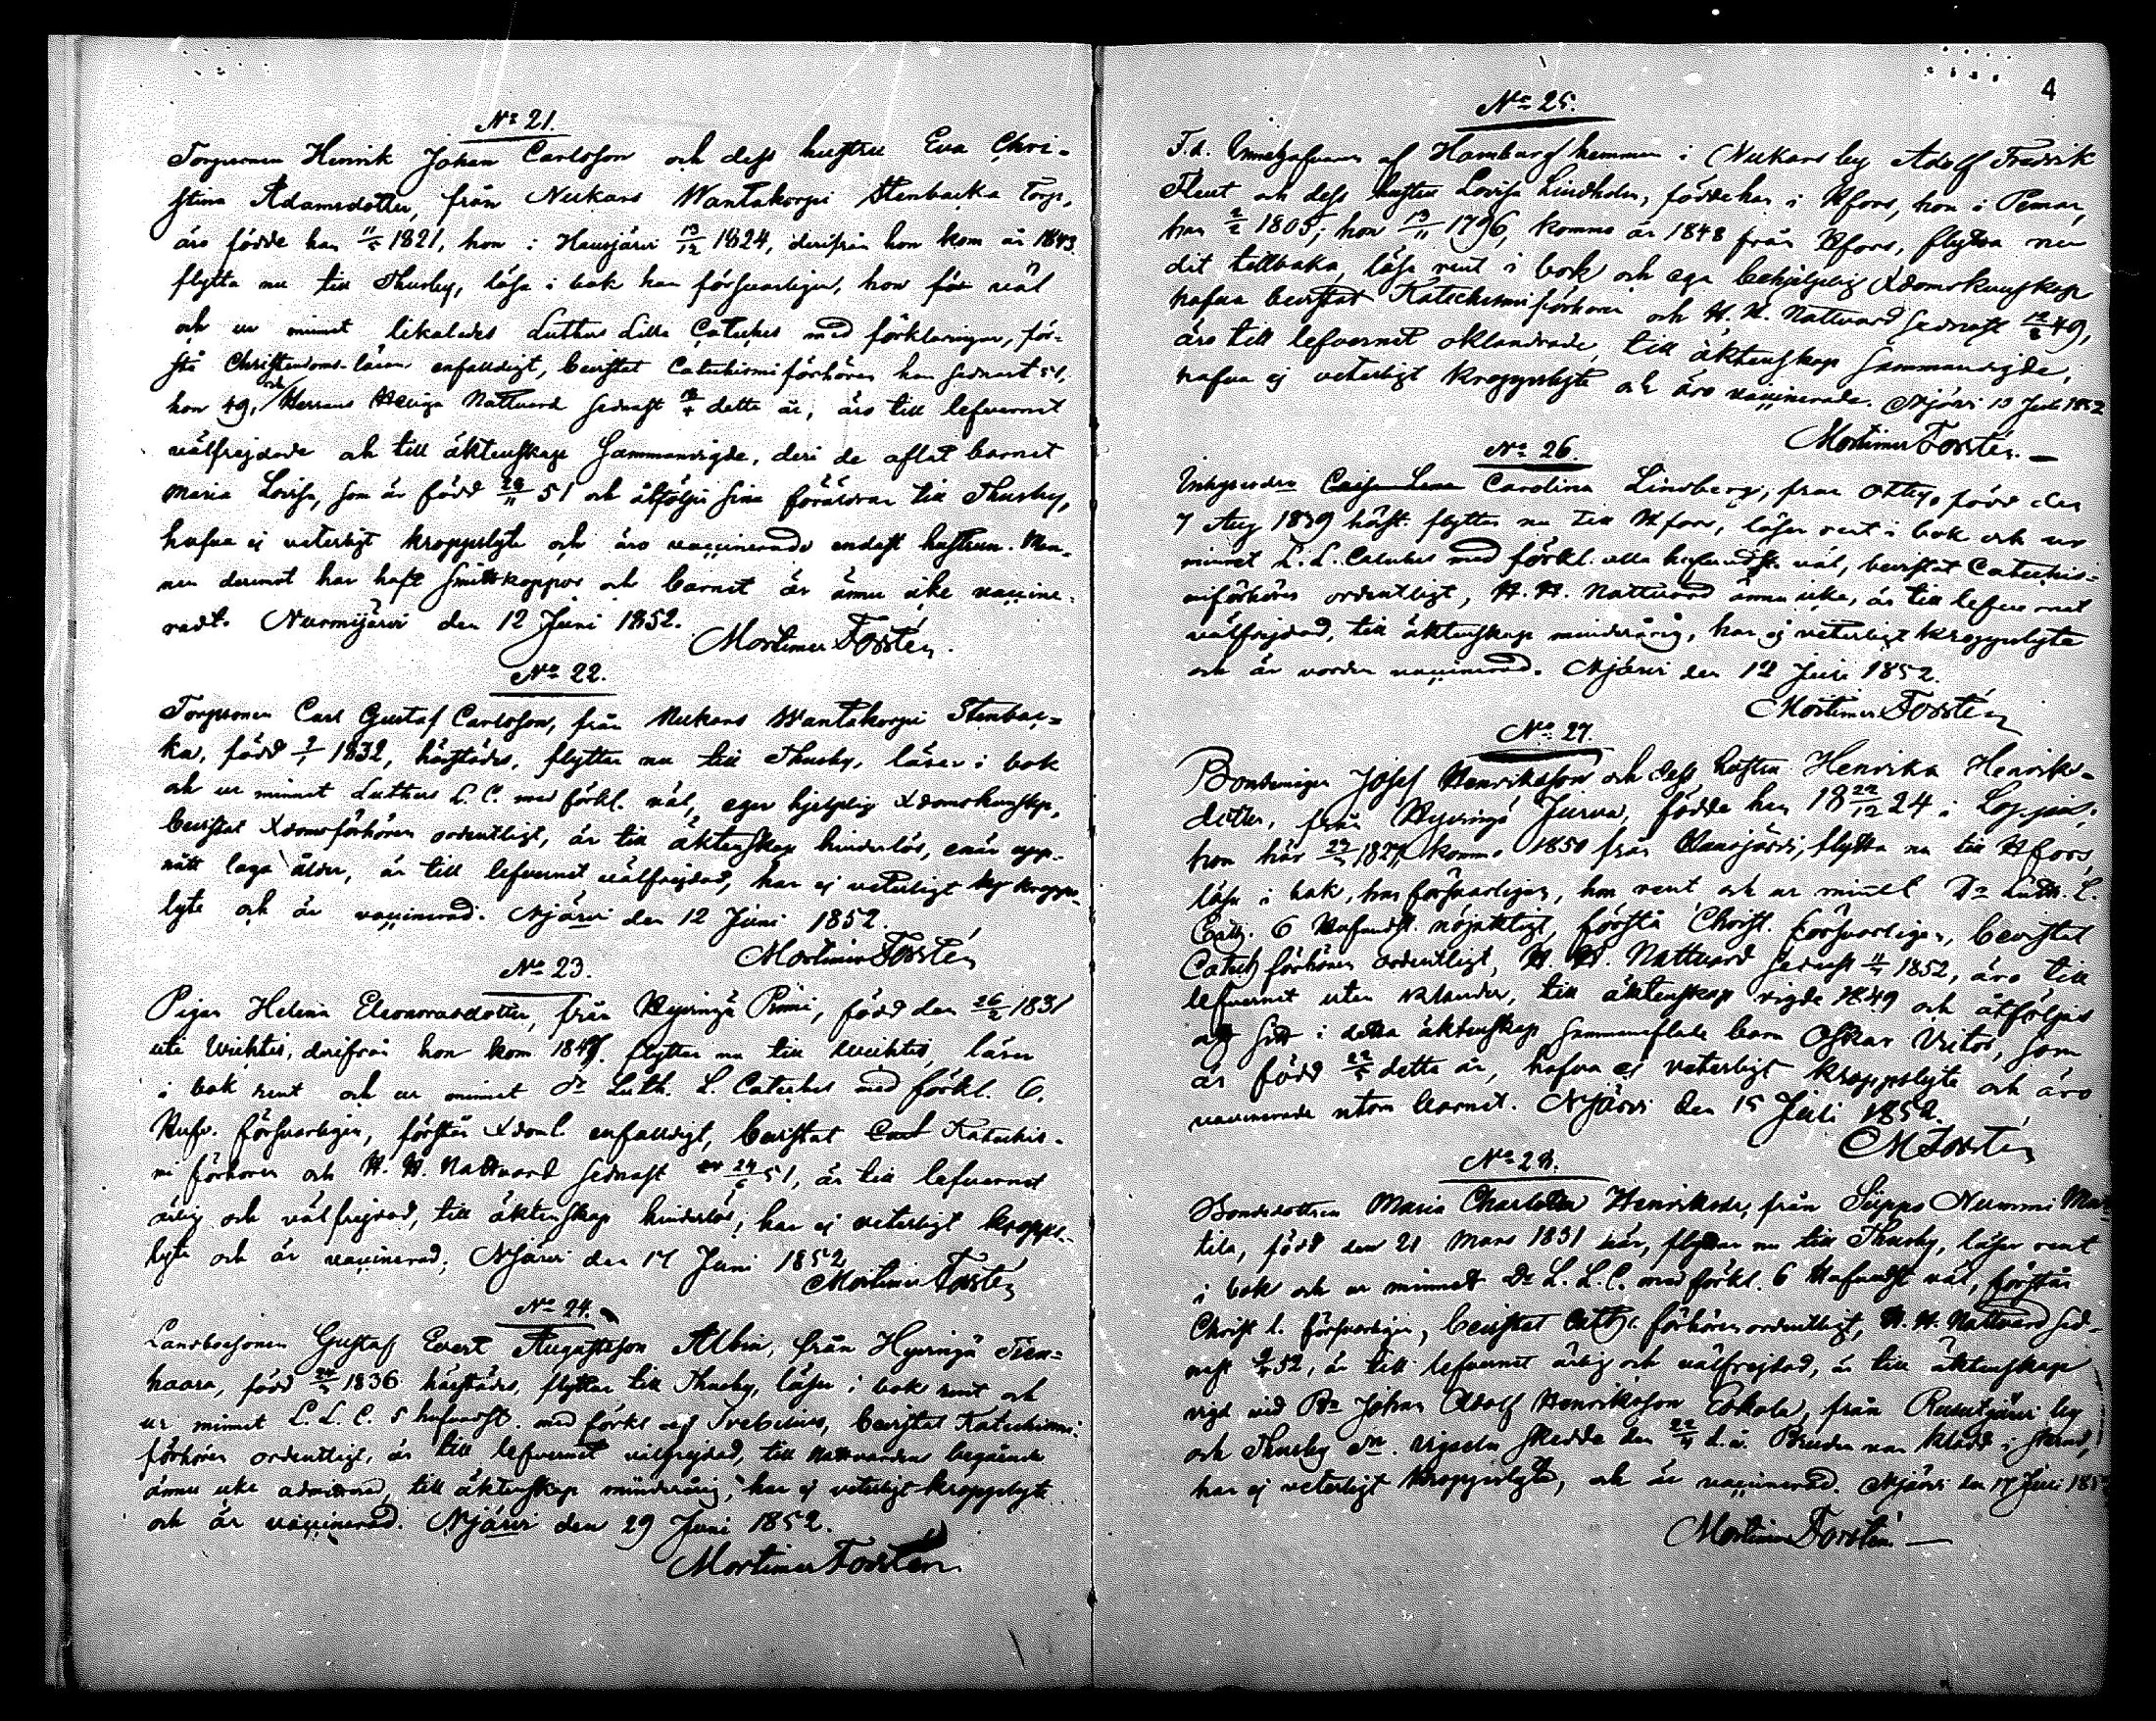 No 21.
Torparen Henrik Johan Carlsson och dess hustru Eva Chri-
stina Adamsdotter, från Nukars Wantakorpi Stenbacka Torp,
äro födde han 11/5 1821, hon i Hausjärvi 13/12 1824, derifrån hon kom år 1843.
flytta nu till Thusby, läsa i bok han försvarligen, hon väl
och ur minnet likaledes Luthers Lilla Cateches med förklaringar, för-
stå Christendoms-läran enfaldigt, bevistat Catechismiförhören han sednast 51,
hon 49, och Herrans Heliga Nattvard sednast dette år, äro till lefvernet
välfrejdade och till äktenskap sammanvigde, deri de aflat barnet
Maria Lovisa, som är född 51 och åtföljer sina föräldrar till Thusby,
hafva ej veterligt kroppslyte och äro vaccinerade endast hustrun. Man-
nen deremot har haft smittkoppor och barnet är ännu icke vaccine-
radt. Nurmijärvi den 12 Juni 1852.
Mortimer Forstén.
No 22.
Torparsonen Carl Gustaf Carlsson, från Nukars Wantakorpi Stenbac-
ka, född 1832, härstädes, flyttar nu till Thusby, läser i bok
och ur minnet Luthers L. C. med förkl. väl, eger hjelplig Xdomskunskap,
bevistat Xdomsförhören ordentligt, är till äktenskap hinderlös, enär upp-
nått laga ålder, är till lefvernet välfrejdad, har ej veterligt kropps-
lyte och är vaccinerad. Njärvi den 12 Juni 1852.
Mortimer Forstén
No 23.
Pigan Helena Eleonorasdotter, från Hyvingä, född den 26/2 1831
uti Wichtis, derifrån hon kom flyttar nu till Wichtis, läser
i bok rent och ur minnet Dr Luth. L. Cateches med förkl. 6.
Hufv. försvarligen, förstår Xdoml. enfaldigt, bevistat Katechis-
mi förhören och H. H. Nattvard sednast 24/6 51, är till lefvernet
ärlig och välfrejdad, till äktenskap hinderlös, har ej veterligt kropps-
lyte och är vaccinerad; Njärvi den 17 Juni 1852
Mortimer Forstén
No 24.
Landbosonen Gustaf Evert Augustsson Albin, från Hyvingä Tien-
haara, född 1836 härstädes, flyttar till Thusby, läser i bok rent och
ur minnet L. L. C. 5 hufvudst. med förkl af Svebilius, bevistat Katechismi-
förhören ordentligt, är till lefvernet välfrejdad, till Nattvardens begående
ännu icke admitterad, till äktenskap minderårig, har ej veterligt kroppslyte
och är vaccinerad. Njärvi den 29 Juni 1852.
Mortimer Forstén
4
No 25.
F.d. Innehafvaren af Hamburg hemman i Nukars by Adolf Fredrik
och dess hustru Lovisa Lindholm, födde han i Hfors, hon i Pemar,
han 2/2 1805, hon 13/11 1796, komne år 1848 från Hfors, flytta nu
dit tillbaka, läsa rent i bok och ega behjelplig Xdomskunskap
hafva bevistat Katechismiförhören och H. H. Nattvard sednast 49,
äro till lefvernet oklandrade, till äktenskap sammanvigde,
hafva ej veterligt kroppslyte och äro vaccinerade. Njärvi 10 Juli 1852
Mortimer Forstén.
No 26.
Inhysesdra Carolina Lindberg, från född den
7 Aug 1839 härst. flyttar nu till Hfors, läser rent i bok och ur
minnet L. L. Cateches med förkl. alla hufvudst. väl, bevistat Catechis-
miförhören ordentligt, H. H. Nattvard ännu icke, är till lefvernet
välfrejdad, till äktenskap minderårig, har ej veterligt kroppslyte
och är vorden vaccinerad. Njärvi den 12 Juli 1852.
Mortimer Forstén
No 27.
Bondemågen Josef Henriksson och dess hustru Henrika Henriks-
dotter, från Hyvingä Jurva, födde han 18 22/12 24 i Loppis,
hon här komne 1850 från Hausjärvi, flytta nu till Hfors,
läsa i bok, han försvarligen, hon rent och ur minnet Dr Luth. L.
Catz. 6 Hufvudst. nöjaktigt, förstå Christ. försvarligen, bevistat
Catechförhören ordentligt, H. H. Nattvard sednast 1852, äro till
lefvernet utan klander, till äktenskap vigde 1849 och åtföljas
af sitt i detta äktenskap sammanaflade barn Oskar Viktor, som
är född detta år, hafva ej veterligt kroppslyte och äro
vaccinerade utom barnet. Njärvi den 15 Juli 1852.
M Forstén
No 28.
Bondedottren Maria Charlotta Henriksdr, från Seppo Nummi Mat-
tila, född den 21 Mars 1831 här, flyttar nu till Thusby, läser rent
i bok och ur minnet Dr L. L. C. med förkl. 6 Hufvudst väl, förstår
Christ l. försvarligen, bevistat förhören ordentligt, H. H. Nattvard sed-
nast 52, är till lefvernet ärlig och välfrejdad, är till äktenskap
vigd vid Johan Adolf Henriksson Eskola, från Rusutjärvi by
och Thusby Sn. Vigseln skedde den d. å. Bruden var klädd i
har ej veterligt kroppslyte, och är vaccinerad. Njärvi den 17 Juli 1852
Mortimer Forstén